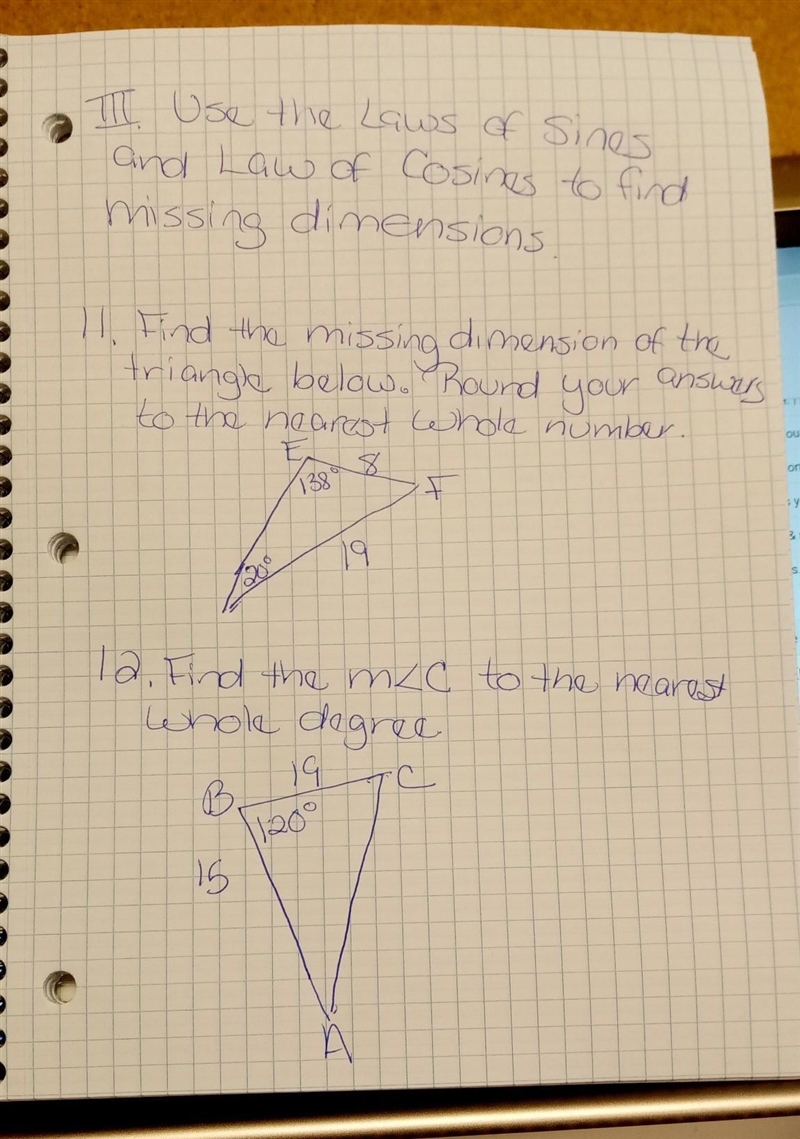 III. Use the Laws of Sines
and Law of Cosines to find
missing dimensions.
11. Find the missing dimension of the
triangle below. Round your answers
to the nearest whole number.
E 8
138° F
20° 19
12. Find the m∠C to the nearest
whole degree
19
B C
120°
15
A